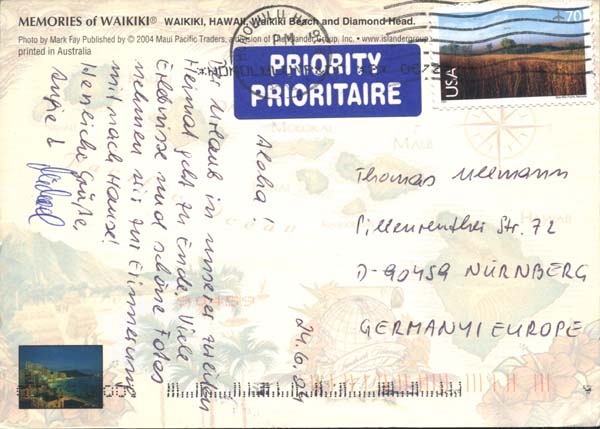 MEMORIES of WAIKIKI® WAIKIKI, HAWAII, Waikiki Beach and Diamond Head.
Photo by Mark Fay Published by © 2004 Maui Pacific Traders, a division of The Islander Group, Inc. • www.islandergroup
printed in Australia
PM
PRIORITY
PRIORITAIRE
USA
70
Aloha!
Der Urlaub in unserer zweiten
Heimat geht zu Ende. Viele
Erlebnisse und schöne Fotos
nehmen wir zur Erinnerung
mit nach Hause!
Herzliche Grüße,
Antje &
24.6.04
Thomas Ullmann
Pillenreuther Str. 72
D-90459 NÜRNBERG
GERMANY/EUROPE
MOLOKAI
MAUI
HAWAII
90459